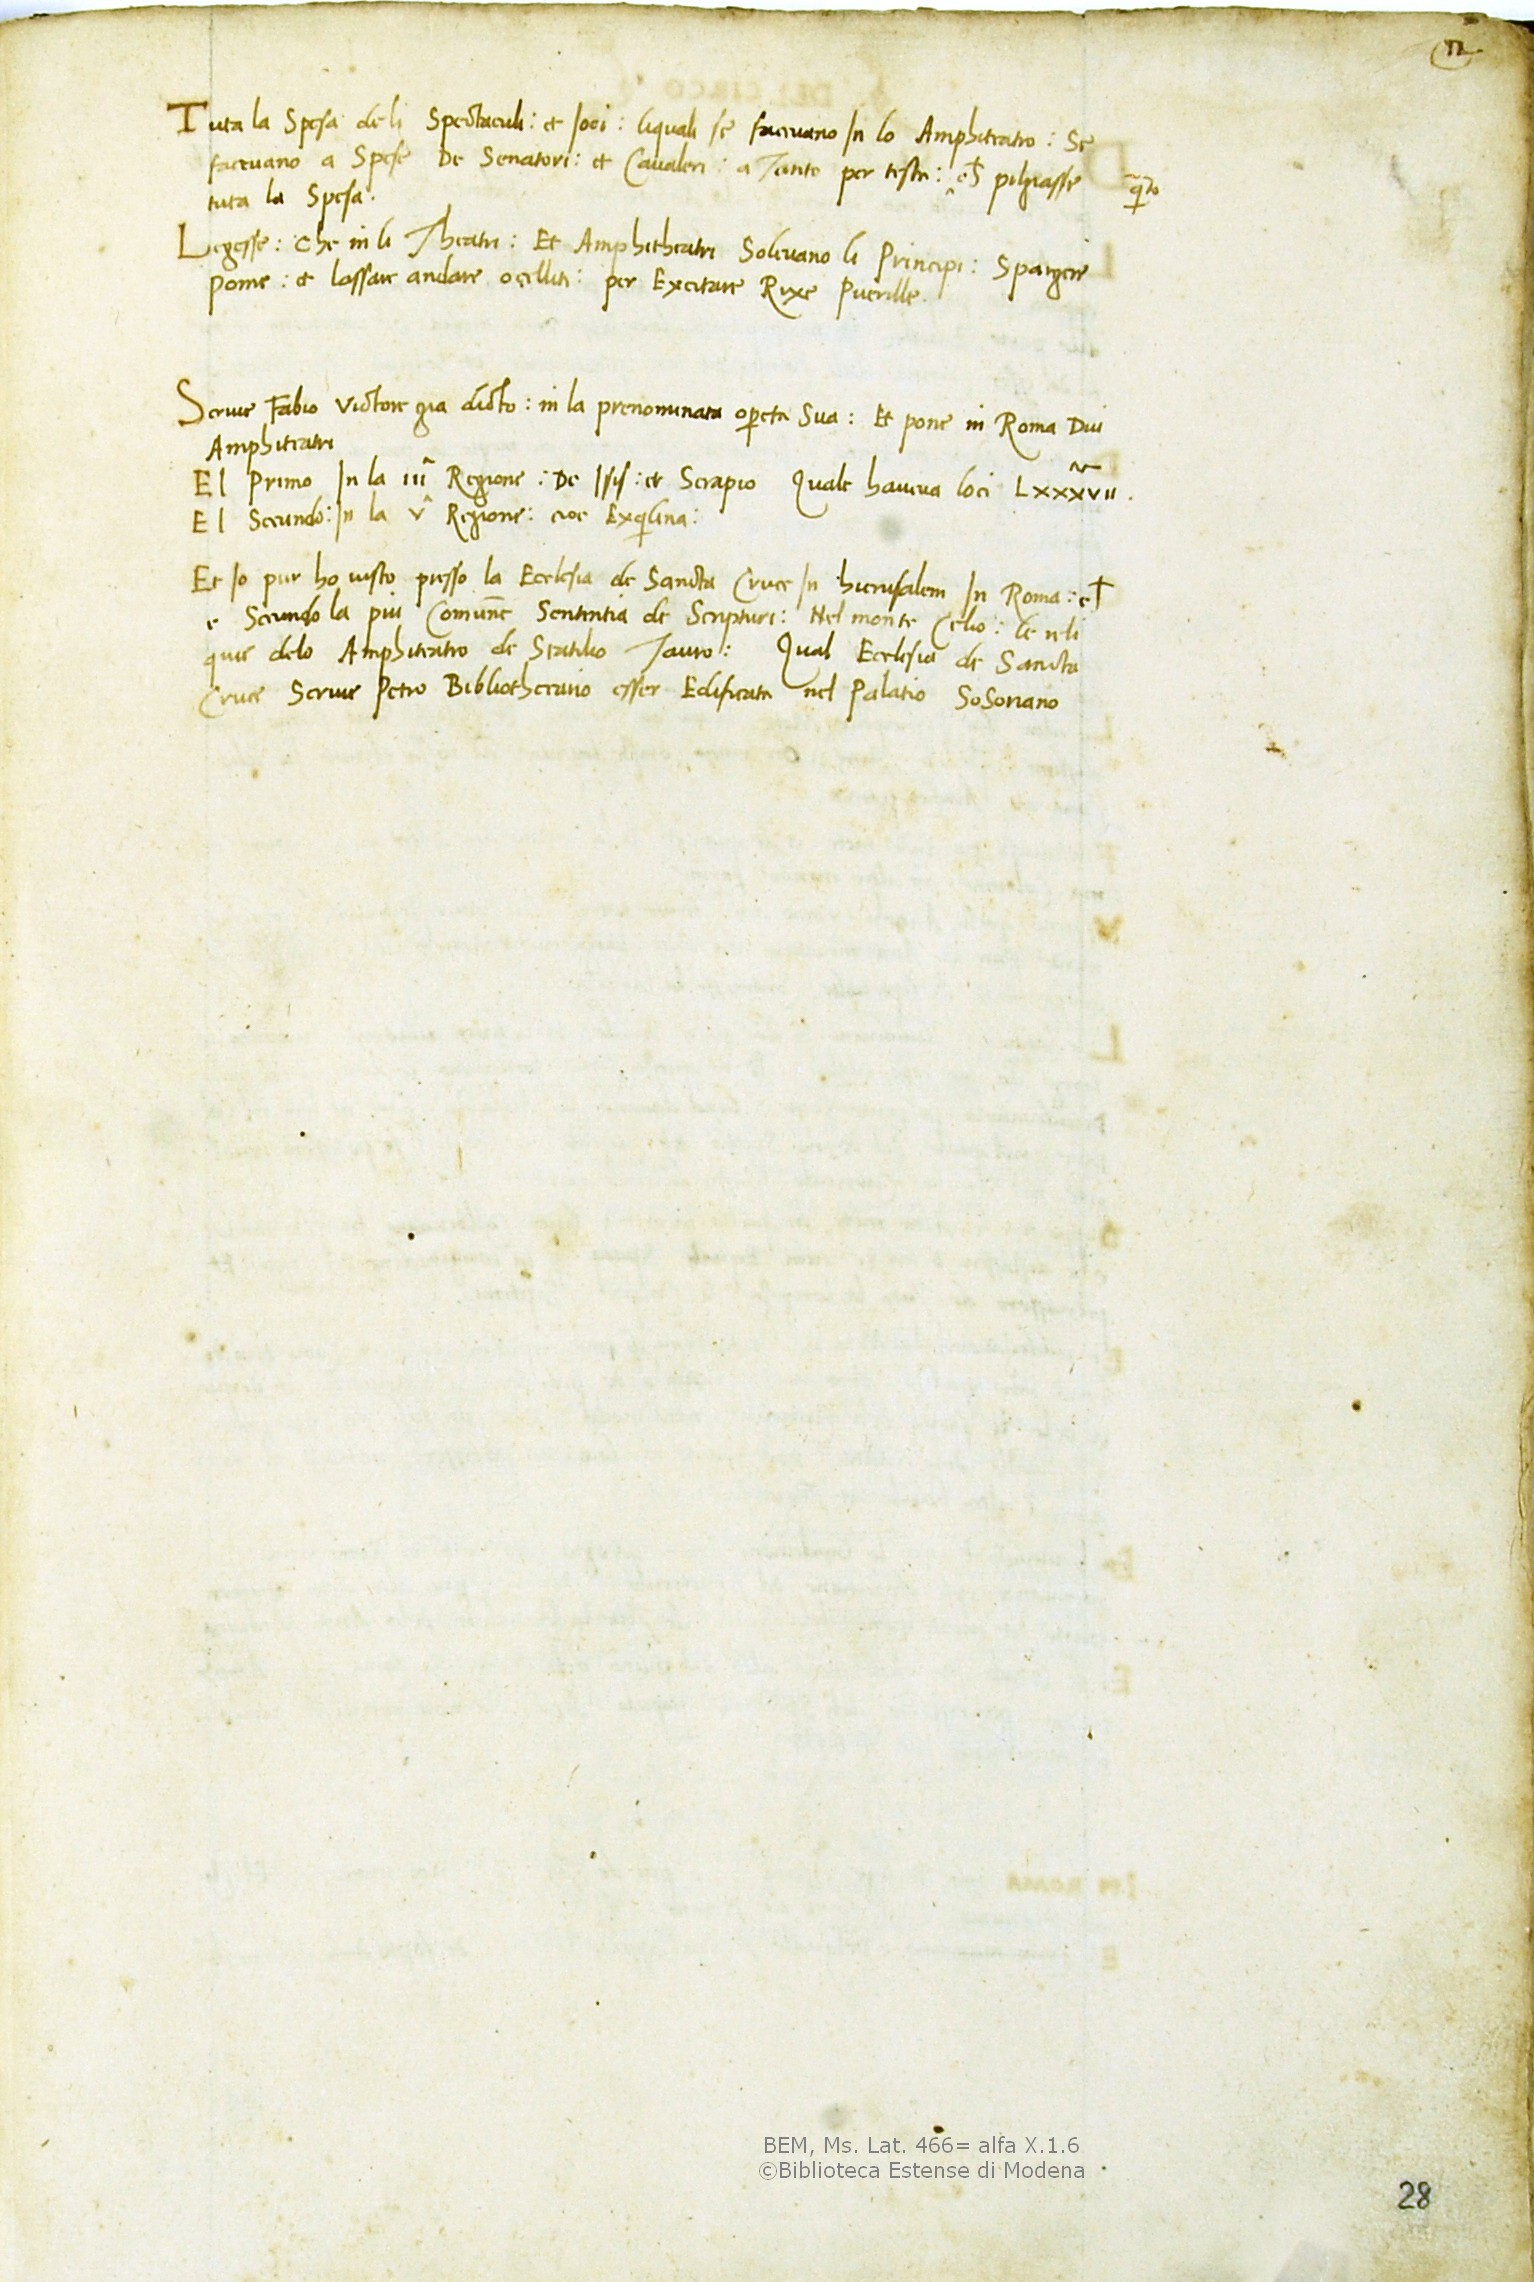 12
Tuta la Spesa deli Spectaculi: et Joci: liquali se facevano In lo Amphiteatro: Se
facevano a Spese De Senatori: et Cavaleri: a Tanto per testa: pigliasse
tuta la Spesa.
Legesse: Che in li Theatri: Et Amphitheatri Solevano li Principi: Spargere
Pome: et lassare andare ocelleti: per Excitare Rixe Puerille.
Scrive Fabio Victore gia dicto: in la prenominata opeta Sua: Et pone in Roma Dui
Amphiteatri
El Primo In la iii^a Regione: De Isis: et Serapio Quale haveva loci Lxxxvii.
El Secundo: In la v^a Regione: cioe Exqlina:
Et Io pur ho visto presso la Ecclesia de Sancta Cruce In hierusalem In Roma:
e Secundo la piu Comune Sententia de Scripturi: Nel monte Celio: le reli
quie delo Amphiteatro de Statilio Tauro: Qual Ecclesia de Sancta
Cruce Scrive Petro Bibliothecario esser Edificata nel Palatio SoSoriano
BEM, Ms. Lat. 466= alfa X.1.6
©Biblioteca Estense di Modena
28